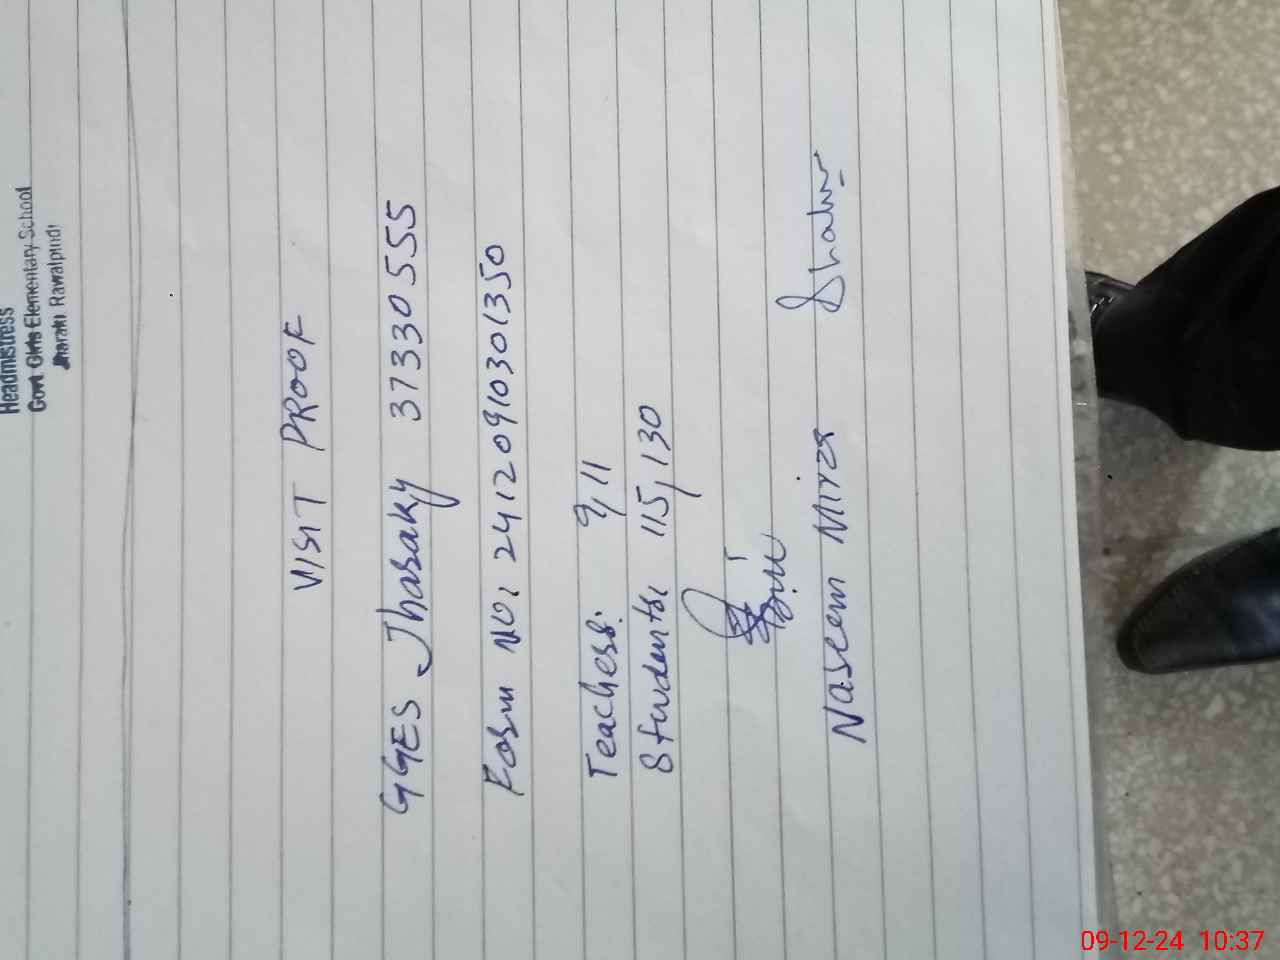 Headmistress
Govt Girls Elementary School
Jharaki Rawalpindi
VISIT PROOF
GGES Jharaky 37330555
Form No: 24120910301350
Teachers: 9,11
Students: 115,130
Naseem Mirza
09-12-24 10:37